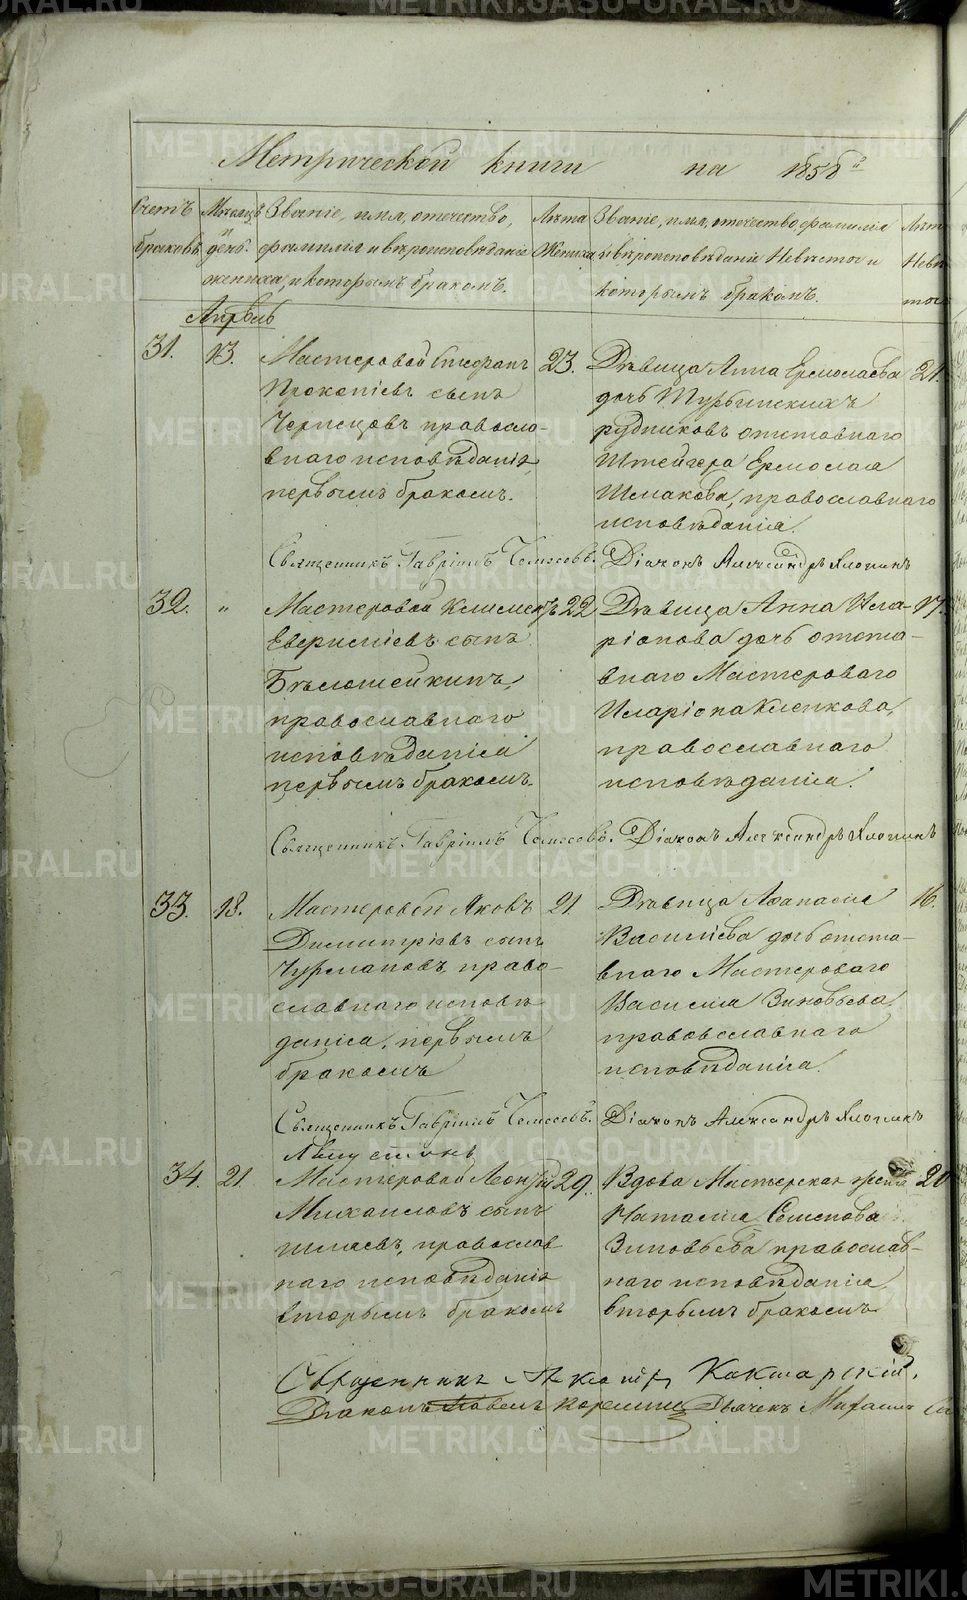 Метрической книги на 1858й
Счетъ браковъ
Мѣсяцъ и день.
Званіе, имя, отечество, фамилія и вѣроисповѣданіе жениха, и которымъ бракомъ.
Лѣта Жениха
Званіе, имя, отечество, фамилія и вѣроисповѣданіе Невѣсты и которымъ бракомъ.
Лѣта Невѣсты
Апрѣль
31. 13.
Мастеровой Стефанъ
Прокопіевъ сынъ
Чернецовъ правосло-
внаго исповѣданія,
первымъ бракомъ.
23.
Дѣвица Анна Ермолаева
дочь Турьинскихъ
рудниковъ отставнаго
Штейгера Ермолая
Шмакова, православнаго
исповѣданія.
21.
Священникъ Гавріилъ
Діаконъ Александръ Япинъ
32. „
Мастеровой Климентъ
сынъ
Бѣлошейкинъ,
православнаго
исповѣданія
первымъ бракомъ.
22.
Дѣвица Анна Ила-
ріонова дочь отста-
внаго Мастероваго
Иларіона Клепкова,
православнаго
исповѣданія.
17.
Священникъ Гавріилъ
Діаконъ Александръ
33. 18.
Мастеровой Яковъ
Димитріевъ сынъ
Чурмановъ, право-
славнаго исповѣ
данія, первымъ
бракомъ
21
Дѣвица Афанасія
Васильева дочь отста-
внаго Мастероваго
Василія Зиновьева,
православнаго
исповѣданія.
16.
Священникъ Гавріилъ
Діаконъ Александръ
34. 21.
Мастеровой Леонтій
Михаиловъ сынъ
православ
наго исповѣданія
вторымъ бракомъ
29.
Вдова Мастерская жена
Наталія Семенова
Зиновьева православ-
наго исповѣданія
вторымъ бракомъ
20
Священникъ
Діаконъ Павелъ Дьячекъ Михаилъ
METRIKI.GASO-URAL.RU